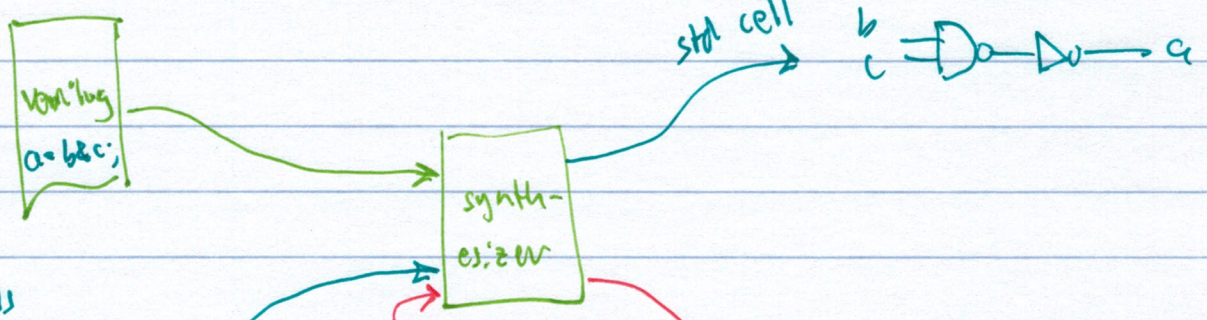 verilog
a = b&c;
synth-
esizer
std cell
b
c
a